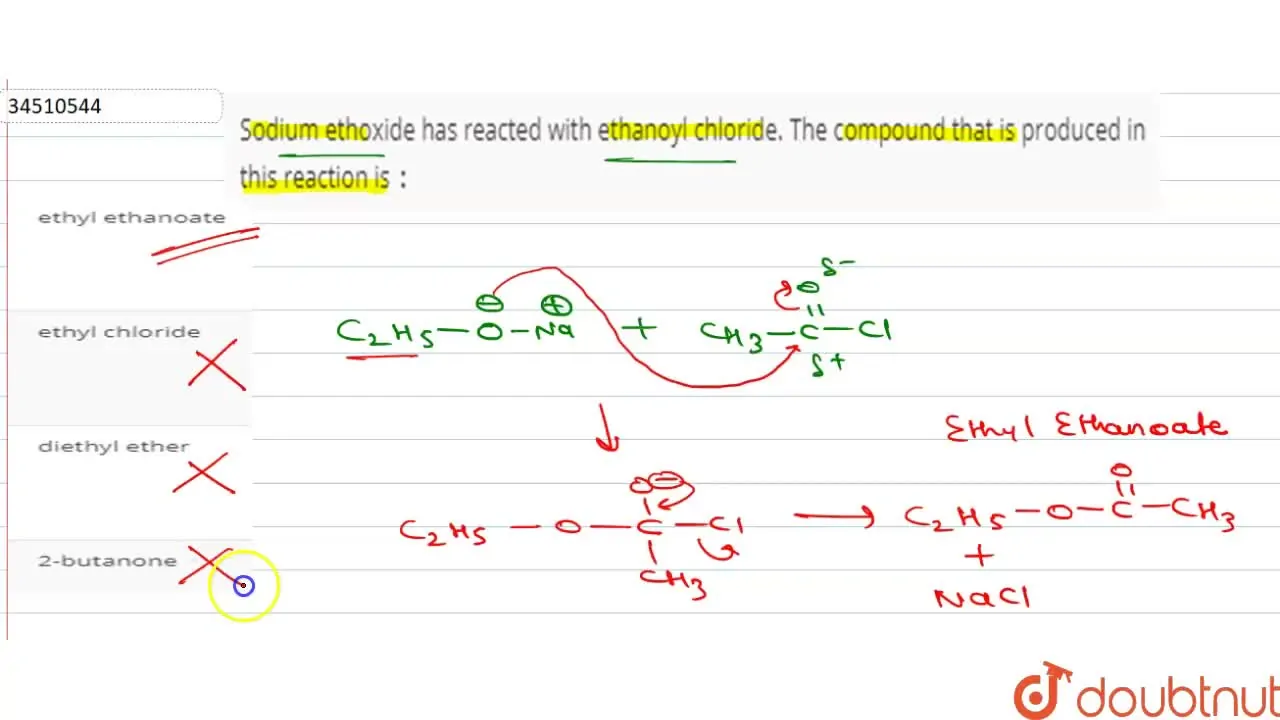 34510544
Sodium ethoxide has reacted with ethanoyl chloride. The compound that is produced in
this reaction is :
ethyl ethanoate
ethyl chloride
diethyl ether
2-butanone
δ-
O
⊖ ⊕
C2H5-O-Na + CH3-C-Cl
δ+
Ethyl Ethanoate
O⊖
C2H5-O-C-Cl
CH3
O
C2H5-O-C-CH3
+
NaCl
doubtnut